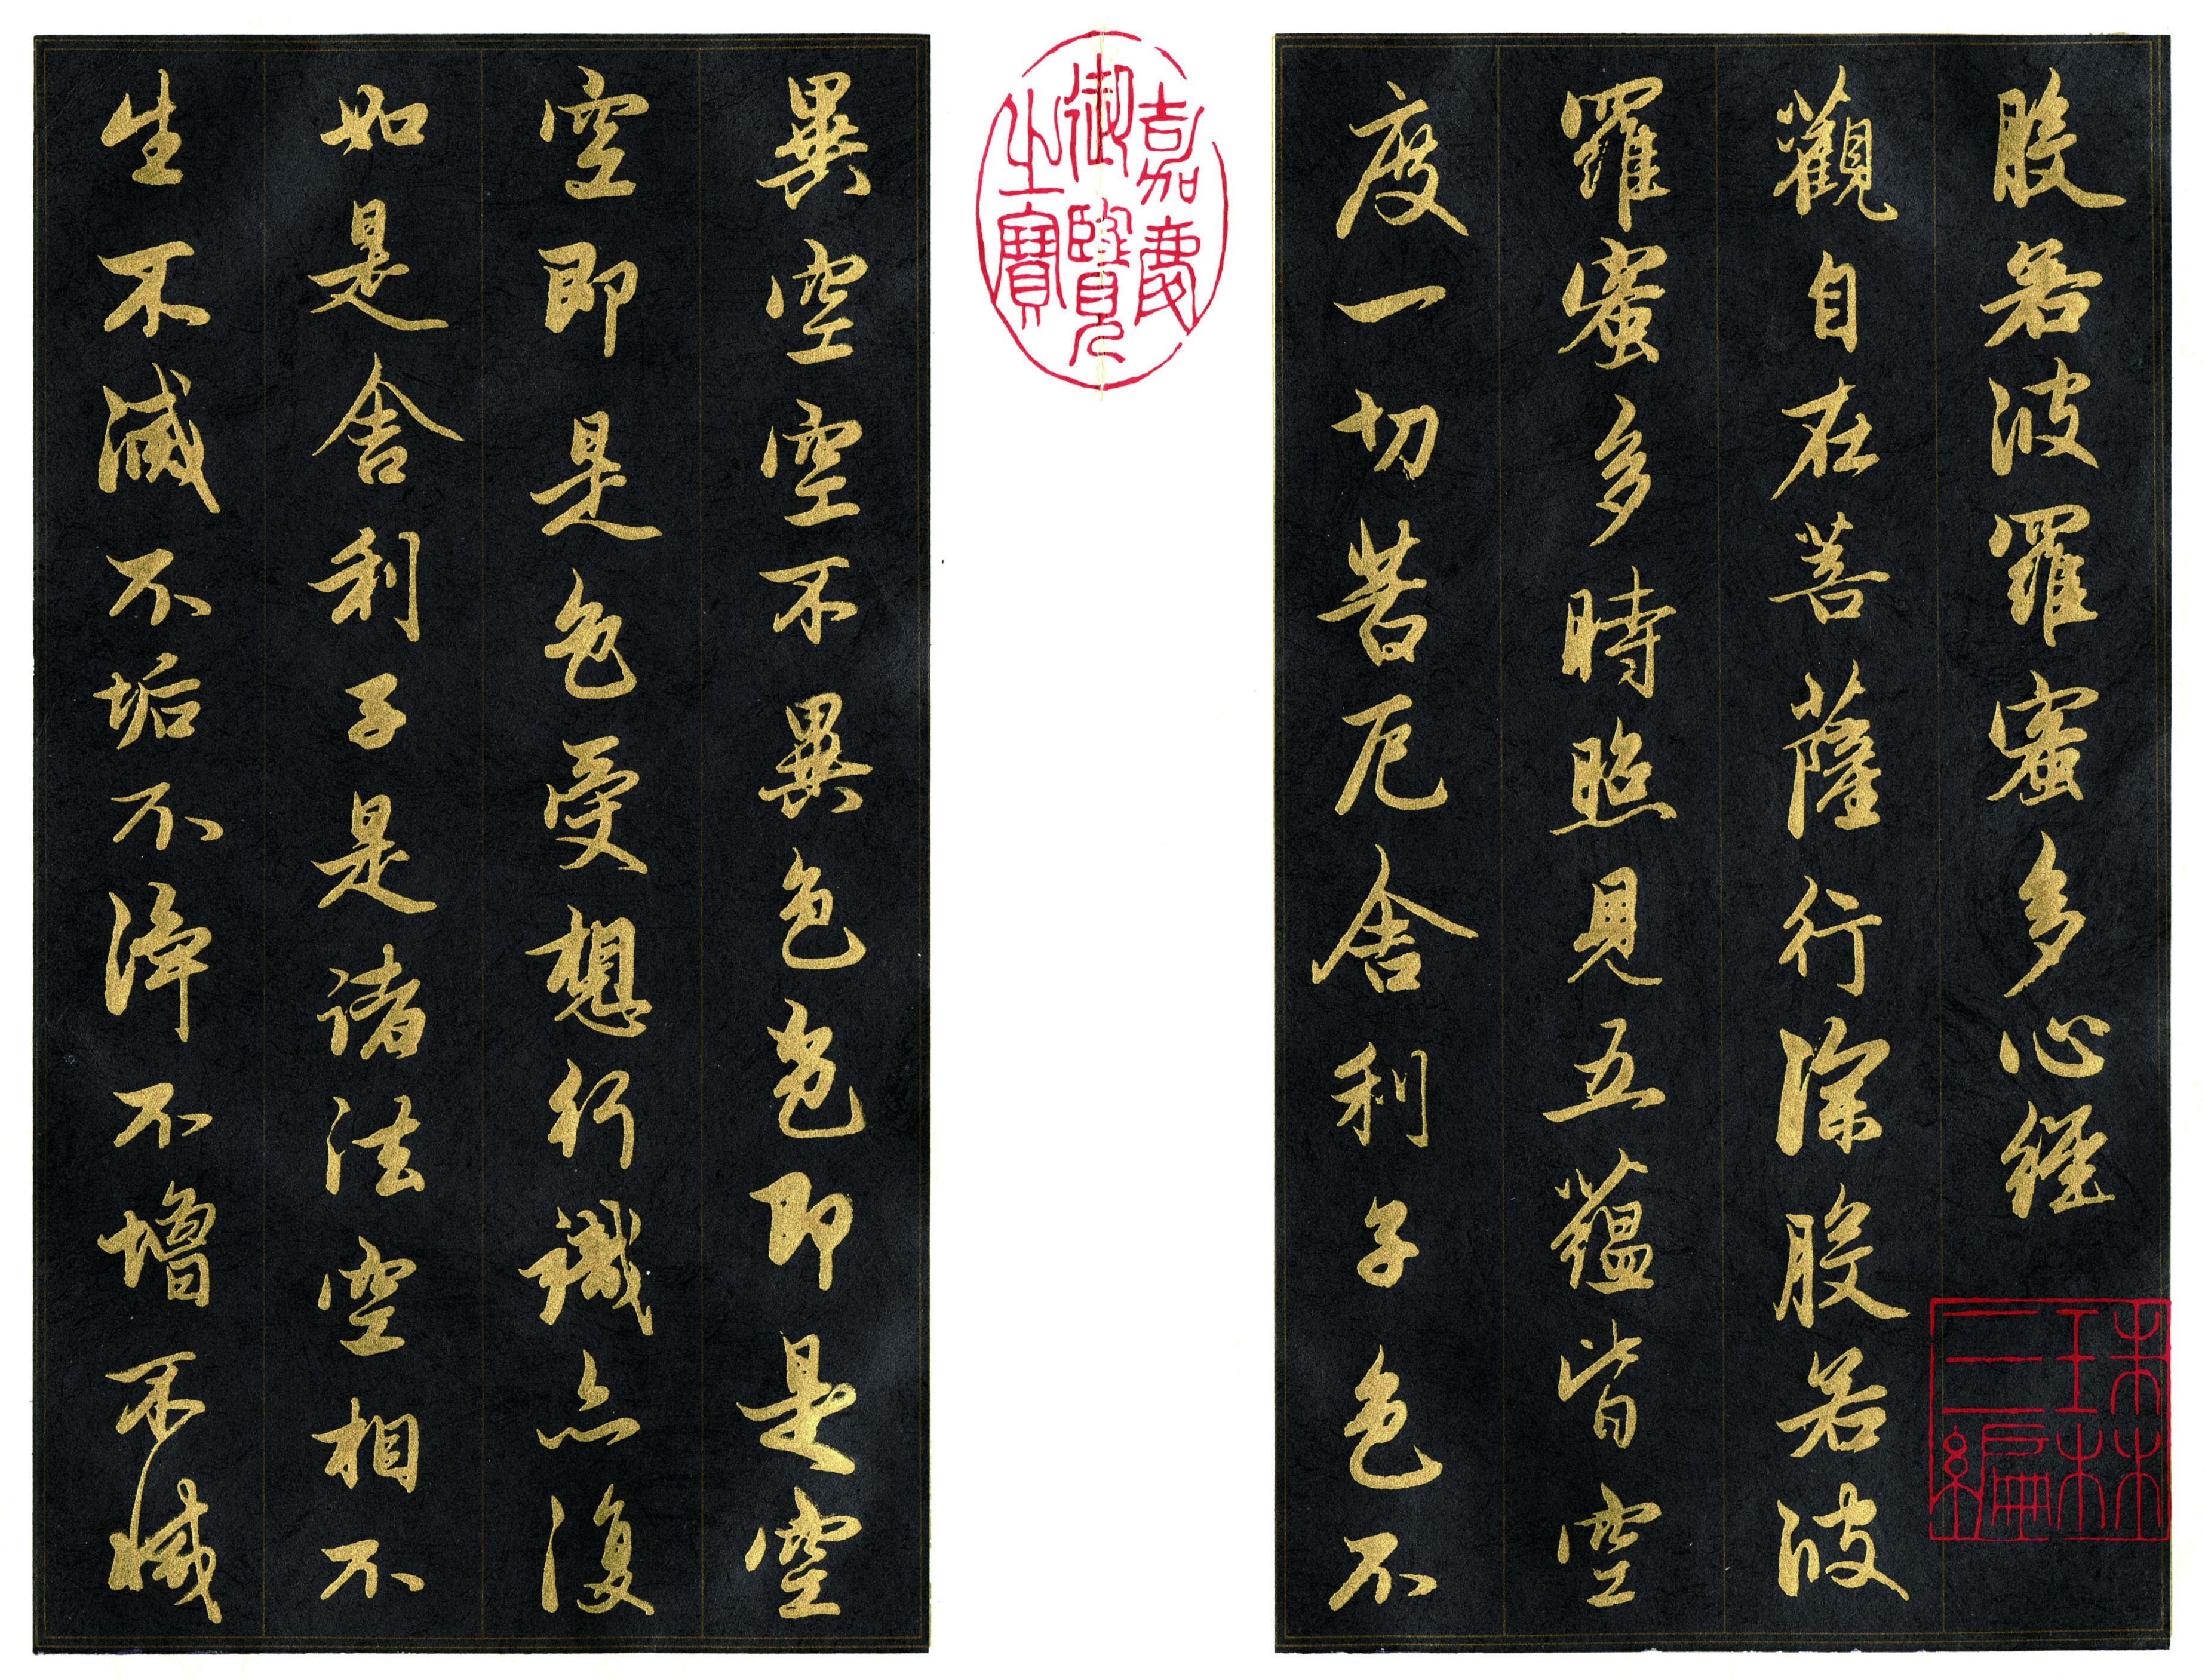 般若波羅蜜多心經
觀自在菩薩行深般若波
羅蜜多時照見五蘊皆空
度一切苦厄舍利子色不
異空空不異色色即是空
空即是色受想行識亦復
如是舍利子是諸法空相不
生不滅不垢不淨不增不減
嘉慶
御覽
之寶
珠林
三編